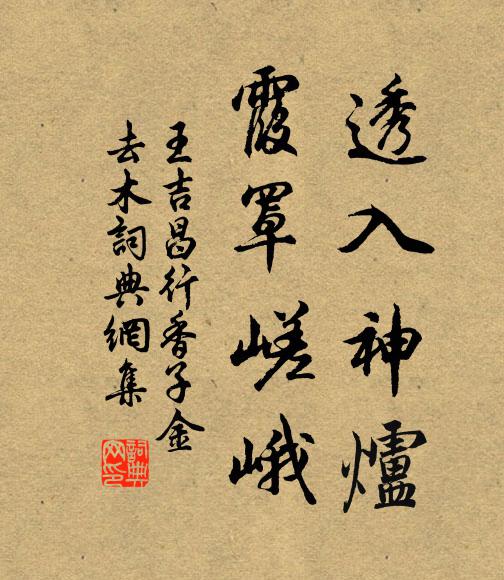 透入神爐
霞罩嵯峨
王吉昌行香子金
去木詞典網集
詞典網印